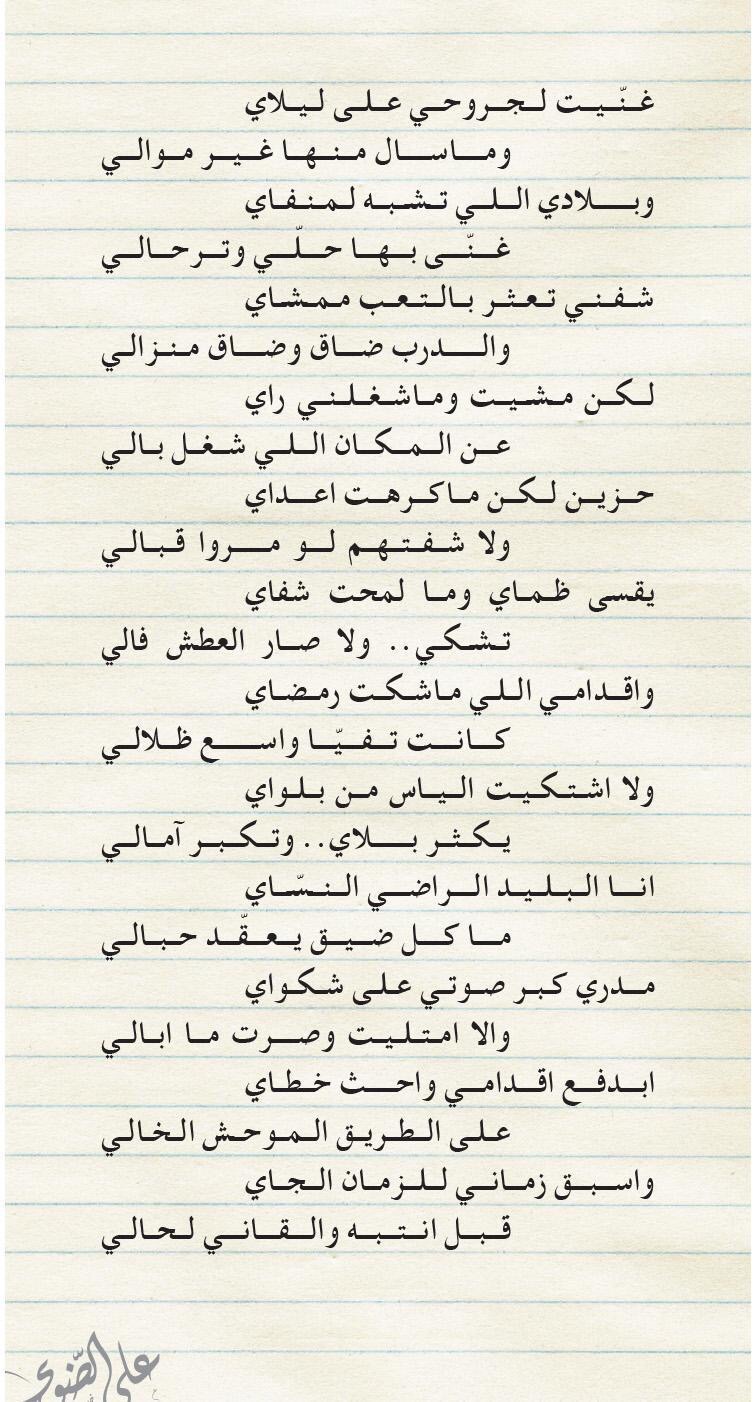 غنّيت لجروحي على ليلاي
وماسال منها غير موالي
وبلادي اللي تشبه لمنفاي
غنّى بها حلّي وترحالي
شفني تعثر بالتعب ممشاي
والدرب ضاق وضاق منزالي
لكن مشيت وماشغلني راي
عن المكان اللي شغل بالي
حزين لكن ماكرهت اعداي
ولا شفتهم لو مروا قبالي
يقسى ظماي وما لمحت شفاي
تشكي.. ولا صار العطش فالي
واقدامي اللي ماشكت رمضاي
كانت تفيّا واسع ظلالي
ولا اشتكيت الياس من بلواي
يكثر بلاي.. وتكبر آمالي
انا البليد الراضي النسّاي
ما كل ضيق يعقّد حبالي
مدري كبر صوتي على شكواي
والا امتليت وصرت ما ابالي
ابدفع اقدامي واحث خطاي
على الطريق الموحش الخالي
واسبق زماني للزمان الجاي
قبل انتبه والقاني لحالي
علي الضّوي